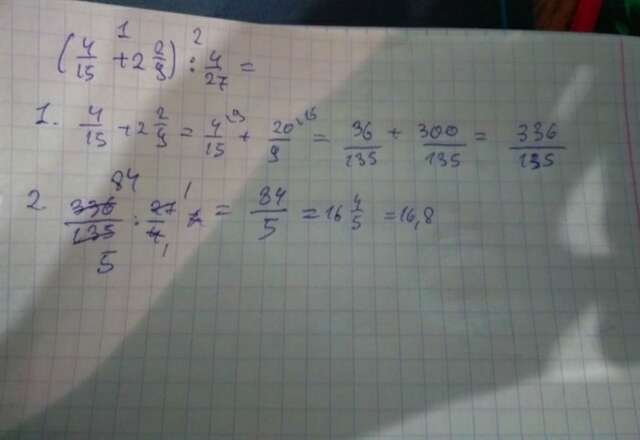 1 2
(4/15 + 2 2/9) : 4/27 =
1. 4/15 + 2 2/9 = 4/15 ^9 + 20/9 ^15 = 36/135 + 300/135 = 336/135
2. 336/135 : 27/4 = 84/5 = 16 4/5 = 16,8
84 1
5 1